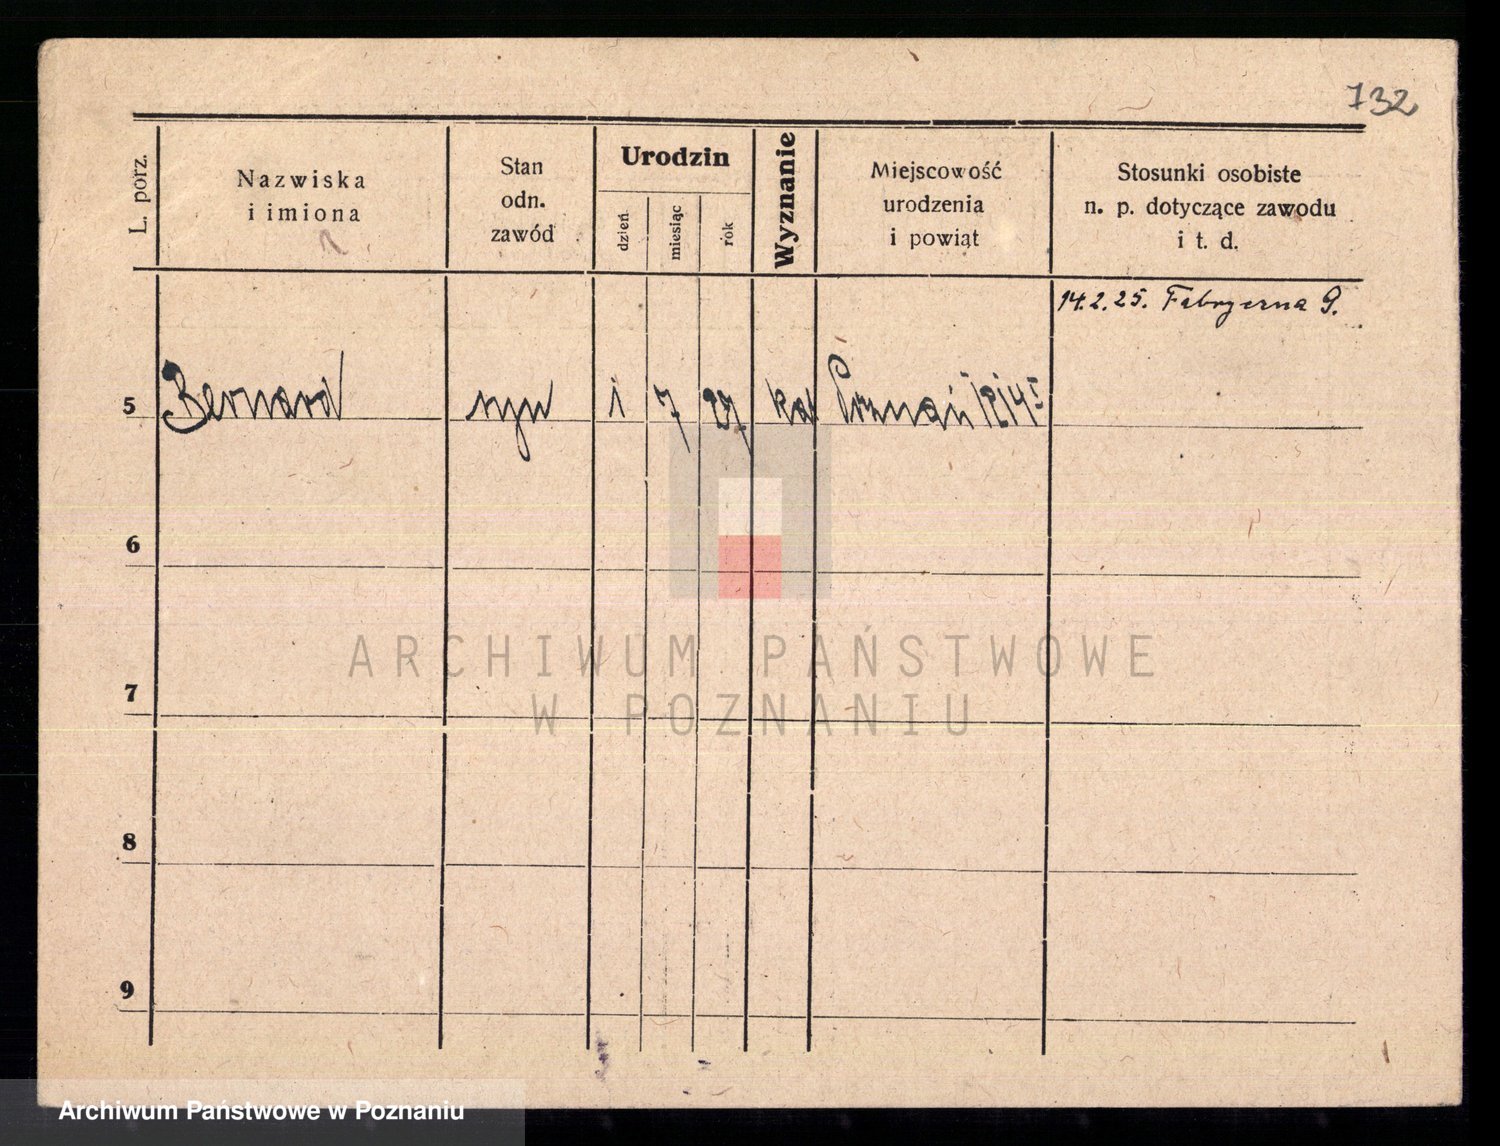 732
L. porz.
Nazwiska
i imiona
Stan
odn.
zawód
Urodzin
dzień
miesiąc
rok
Wyznanie
Miejscowość
urodzenia
i powiąt
Stosunki osobiste
n. p. dotyczące zawodu
i t. d.
14.2.25. Fabryczna 9.
5 Bernard syn 1 7 27 kat Poznań
6
7
8
9
ARCHIWUM PAŃSTWOWE
W POZNANIU
Archiwum Państwowe w Poznaniu